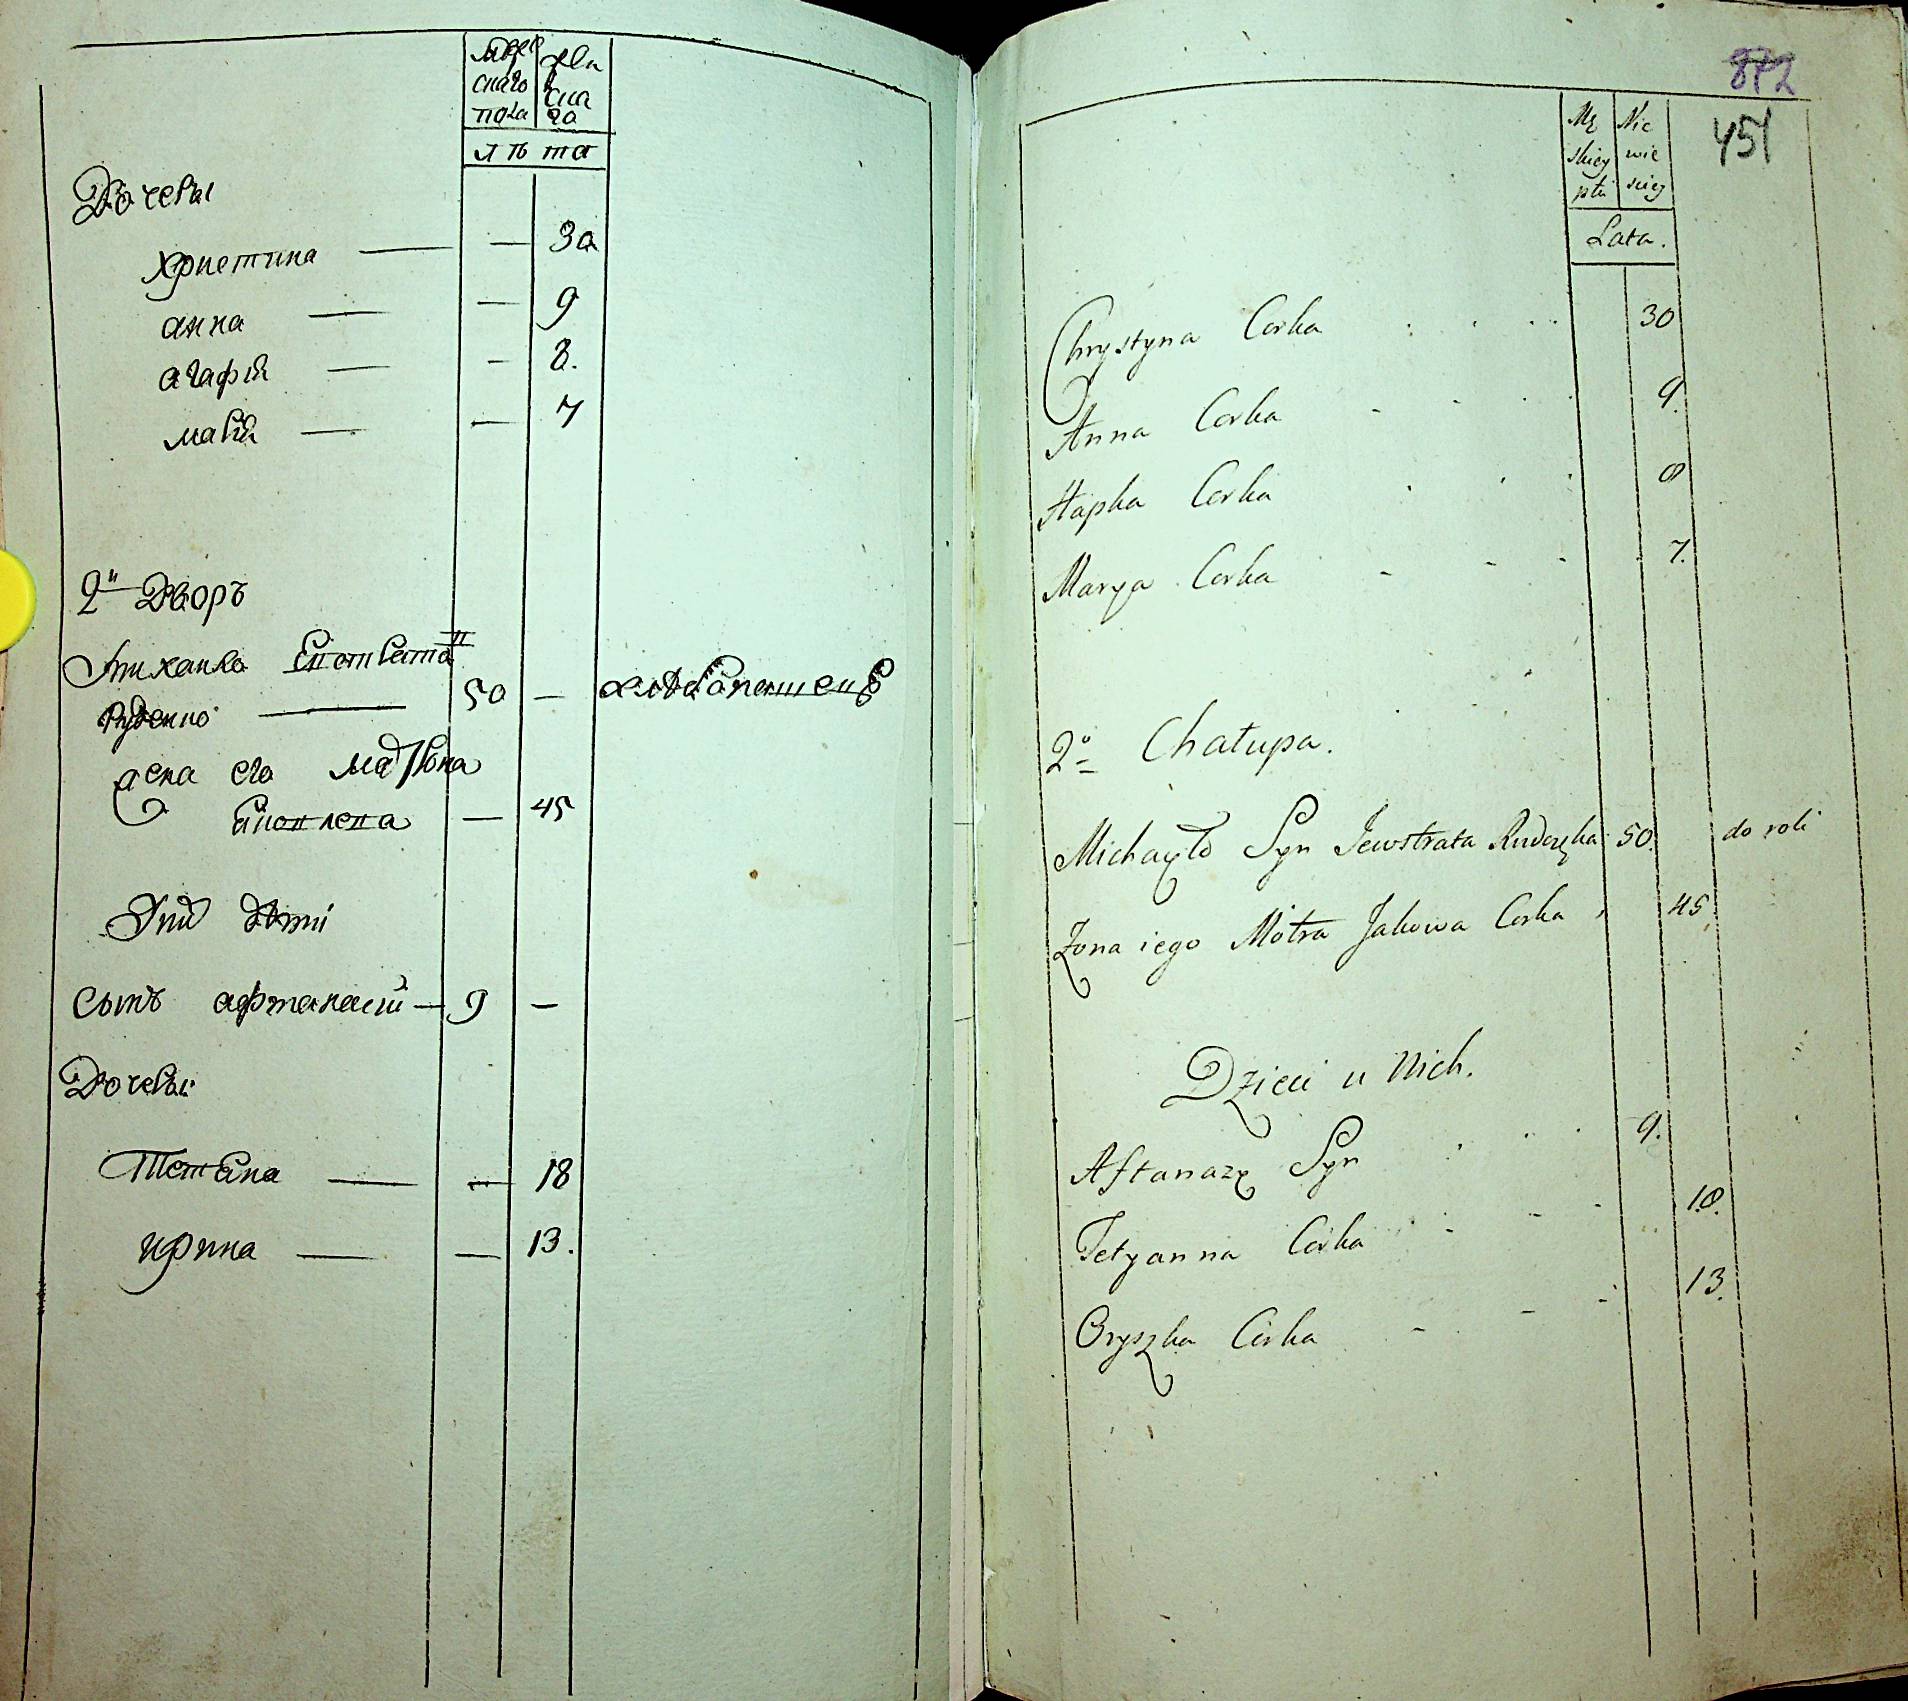 мужескаго пола
женскаго
лѣта
Дочеры
христина — — 30
анна — — 9
агафія — — 8.
марія — — 7
2й Дворъ
Михайло Евстратов
Руденко — 50 — хлѣбопашецъ
жена его мадрона
— 45
У них дѣти
Сынъ афтанасій — 9 —
Дочеры
Тетяна — — 18
ирина — — 13.
872
451
Męskiey płci
Niewieściey
Lata.
Chrystyna Corka 30
Anna Corka 9.
Hapka Corka 8
Marya Corka 7.
2o Chałupa.
Michayło Syn Jewstrata 50. do roli
Zona iego Motra Jakowa Corka 45.
Dzieci u Nich.
Aftanazy Syn 9.
Tetyanna Corka 18.
Oryszka Corka 13.